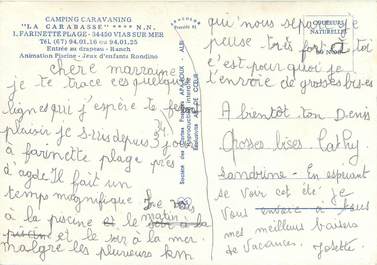 CAMPING CARAVANING
"LA CARABASSE" **** N.N.
1, FARINETTE PLAGE - 34450 VIAS SUR MER
Tél. (67) 94.01.16 ou 94.05.25
Entrée au drapeau - Ranch
Animation Piscine - Jeux d'enfants Rondino
chere marraine
je te trace ces quelques
lignes qui j'espère te feront
plaisir je suis depuis 3 jours
à farinette plage près
d'agde Il fait un
temps magnifique Je vais
à la piscine le matin
et le soir à la mer.
malgré les plusieurs km
Société des Cartes Postales APA-POUX - ALBI
Reproduction interdite
Résidence AS DE CŒUR
COULEURS
NATURELLES
qui nous sépare je
pense très fort à toi
c'est pour quoi je
t'envoie de grosses bises
A bientôt ton Denis
Grosses bises Cathy
sandrine - En espérant
se voir cet été je
vous envoie à tous
mes meilleurs baisers
de vacances. Josette